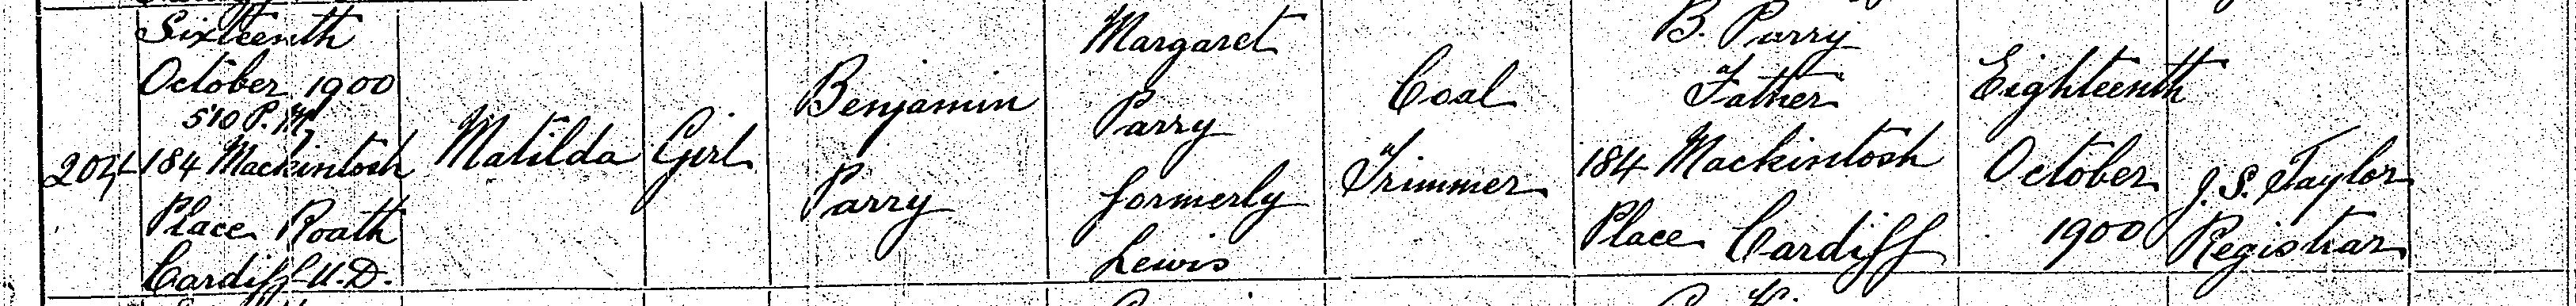 Sixteenth
October 1900
5 10 P.M.
204
184 Mackintosh
Place Roath
Cardiff U.D.
Matilda
Girl
Benjamin
Parry
Margaret
Parry
formerly
Lewis
Coal
Trimmer
B. Parry
Father
184 Mackintosh
Place Cardiff
Eighteenth
October
1900
J. S. Taylor
Registrar